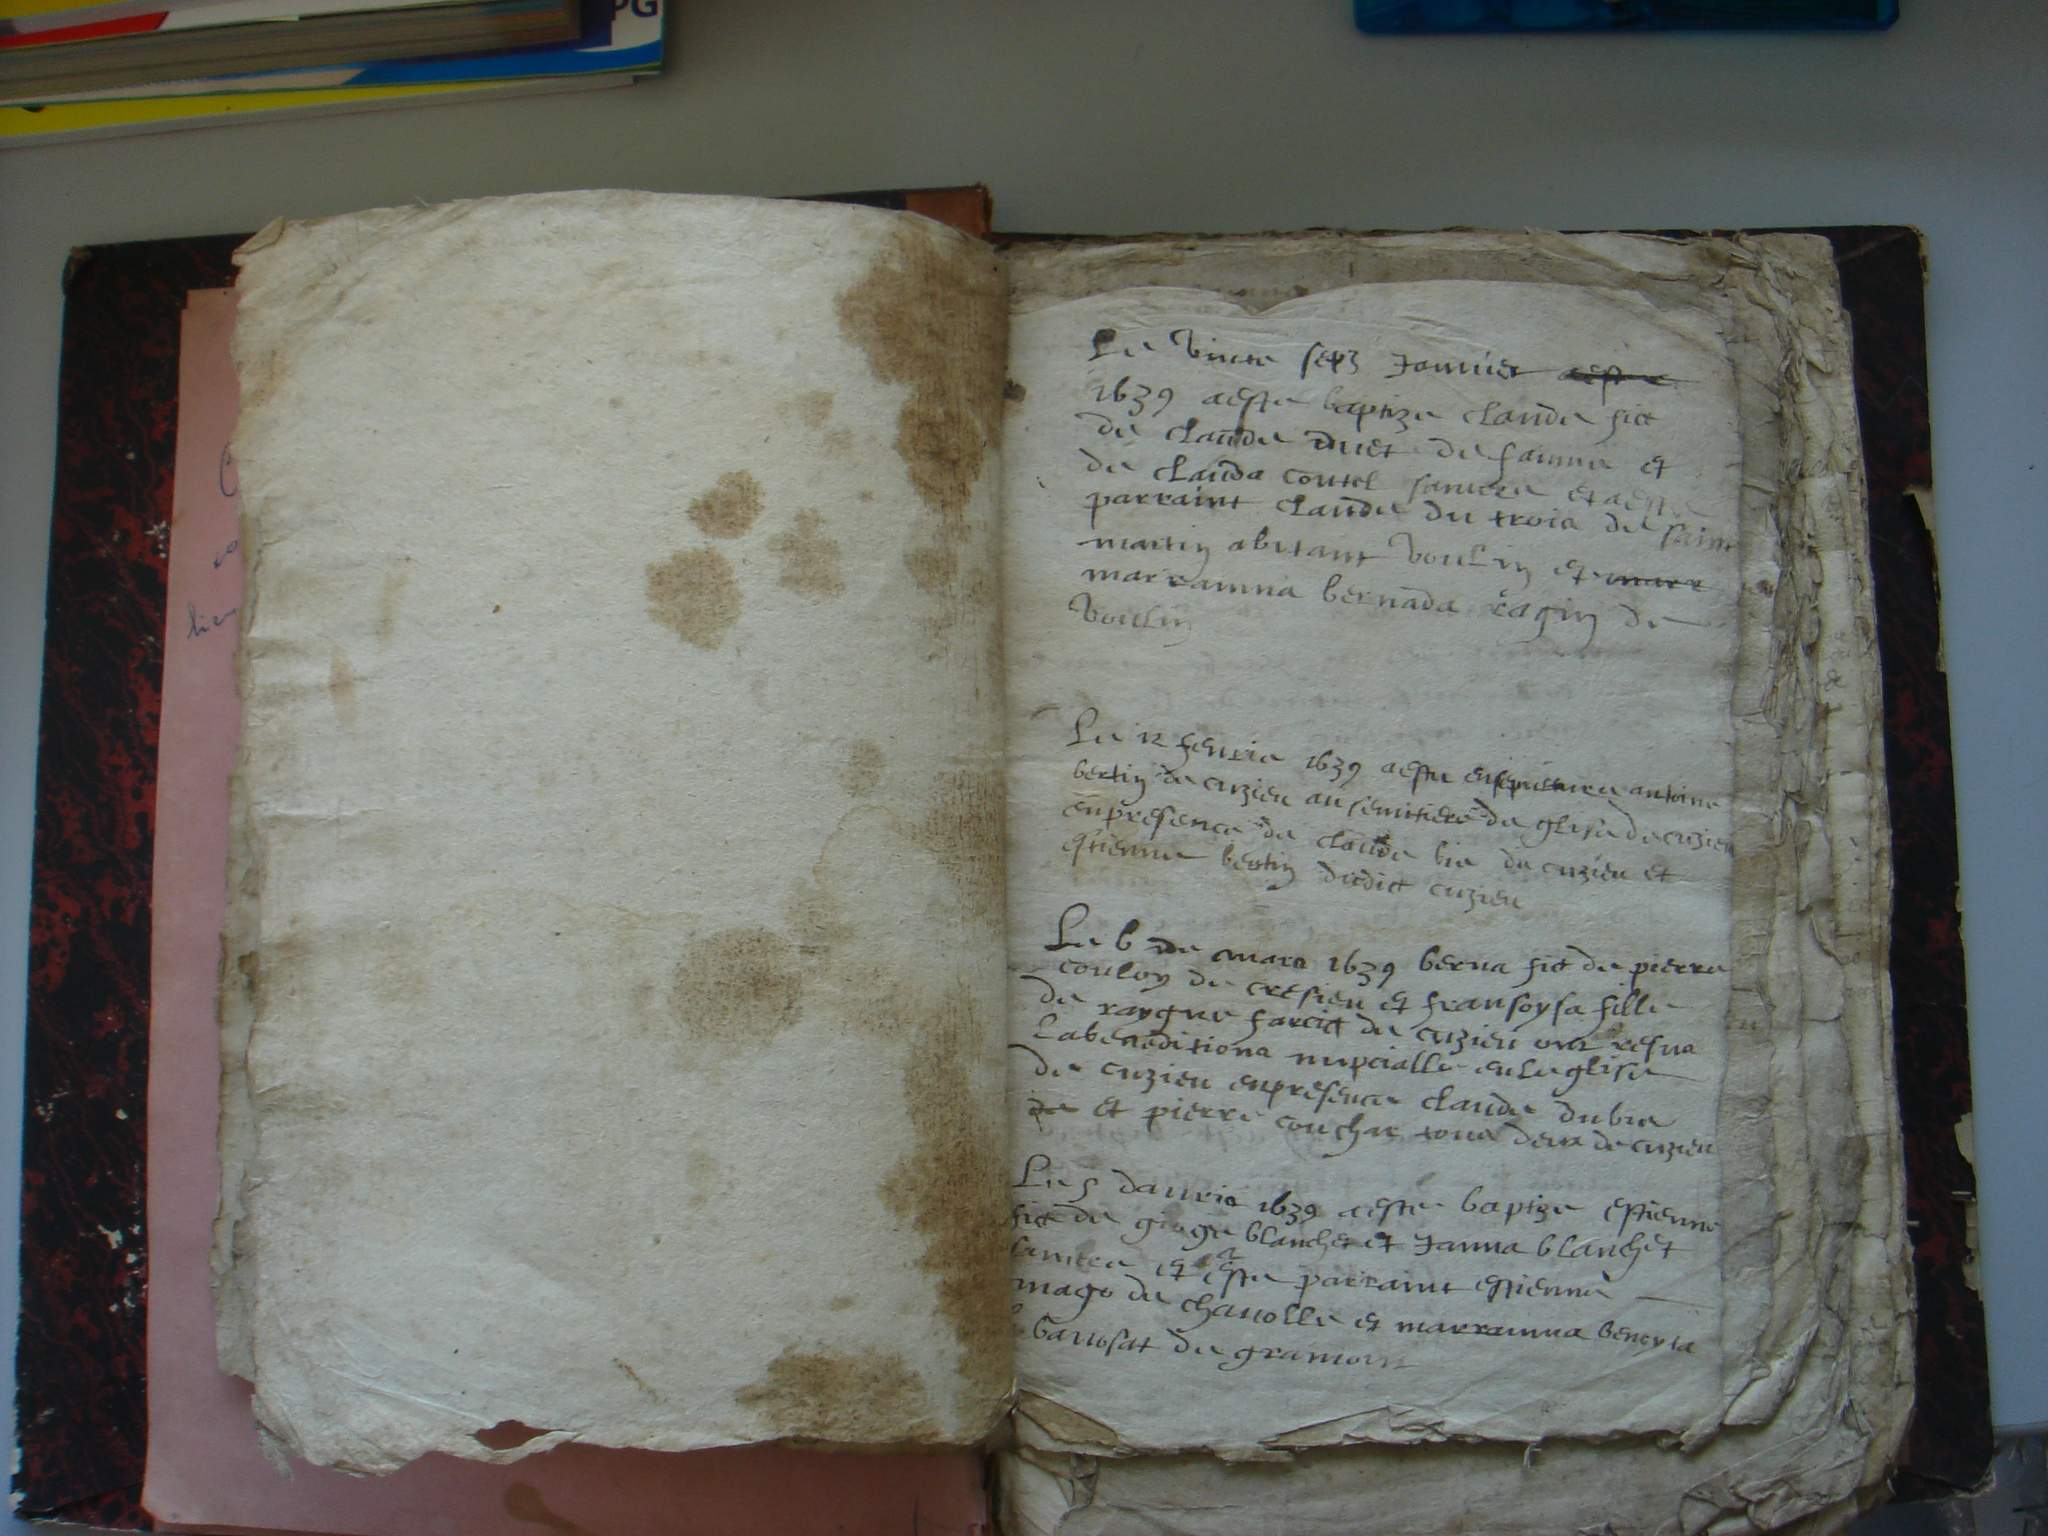 PG
Le vinte sept Januier aeste
1639 aeste baptize claude fict
de claude duet de famme et
de clauda coutel sa mere et aeste
parraint claude du trois de saint
martin abitant voulin et marr
marramna bernada ragin de
voulin
Le 12 feurie 1639 aeste antoine
bertin de cuzieu au semitiere de glise de cuzieu
en presence de claude bie de cuzieu et
estienne bertin dudict cuzieu
Le 6 de mars 1639 berna fict de pierre
coulon de cresieu et fransoysa fille
de farcict de cuzieu ont resua
la beneditiona nupcialle en leglise
de cuzieu en presence claude dubie
de et pierre couchar tous deux de cuzieu
Le 5 dauric 1639 aeste baptize estienne
fict de blanchet et Janna blanchet
sa mere et a este parraint estienne
mago de chanolle et marramna beneyta
banosat de gramont